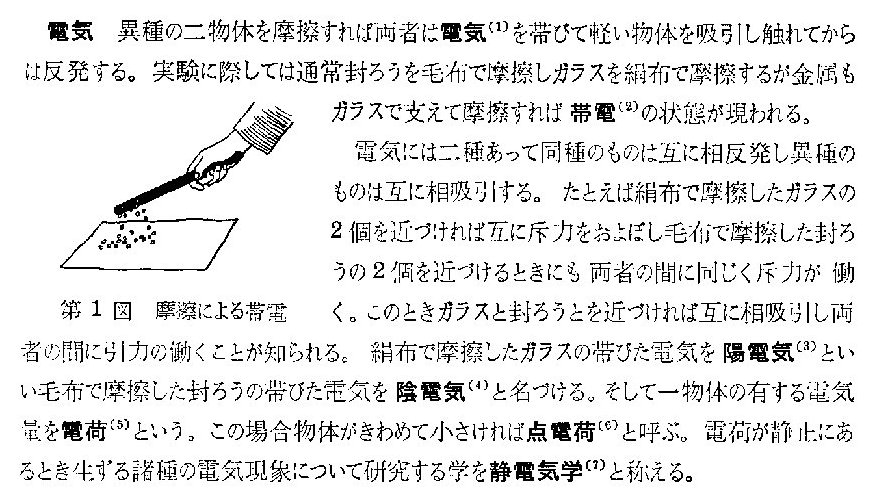 電気　異種の二物体を摩擦すれば両者は電気(1)を帯びて軽い物体を吸引し触れてから
は反発する。実験に際しては通常封ろうを毛布で摩擦しガラスを絹布で摩擦するが金属も
ガラスで支えて摩擦すれば帯電(2)の状態が現われる。
電気には二種あって同種のものは互に相反発し異種の
ものは互に相吸引する。たとえば絹布で摩擦したガラスの
2個を近づければ互に斥力をおよぼし毛布で摩擦した封ろ
うの2個を近づけるときにも両者の間に同じく斥力が働
く。このときガラスと封ろうとを近づければ互に相吸引し両
第1図　摩擦による帯電
者の間に引力の働くことが知られる。絹布で摩擦したガラスの帯びた電気を陽電気(3)とい
い毛布で摩擦した封ろうの帯びた電気を陰電気(4)と名づける。そして一物体の有する電気
量を電荷(5)という。この場合物体がきわめて小さければ点電荷(6)と呼ぶ。電荷が静止にあ
るとき生ずる諸種の電気現象について研究する学を静電気学(7)と称える。